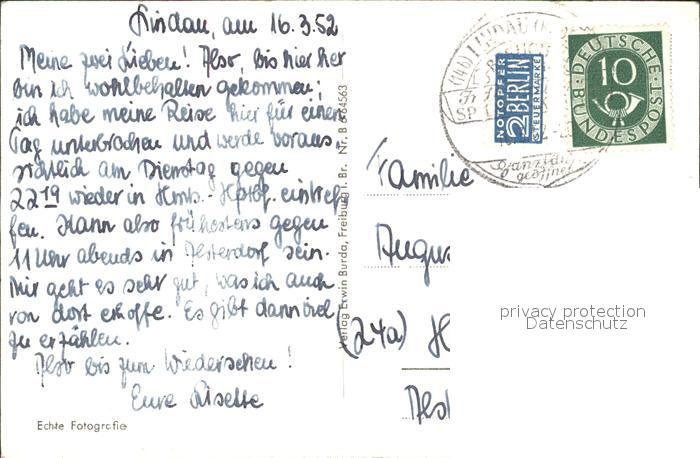 Lindau, am 16.3.52
Meine zwei Lieben! Also, bis hier her
bin ich wohlbehalten gekommen;
ich habe meine Reise hier für einen
Tag unterbrochen und werde voraus-
sichtlich am Dienstag gegen
22 19 wieder in Hmb.- Hptbf. eintref-
fen. Kann also frühestens gegen
11 Uhr abends in Alsterdorf sein.
Mir geht es sehr gut, was ich auch
von dort erhoffe. Es gibt dann viel
zu erzählen.
Also bis zum Wiedersehen!
Eure Liselte
Echte Fotografie
Verlag Erwin Burda, Freiburg i. Br. Nr. B 64563
LINDAU
NOTOPFER
2 BERLIN
STEUERMARKE
DEUTSCHE
BUNDESPOST
10
Familie
Augus
(24a) H
Als
privacy protection
Datenschutz